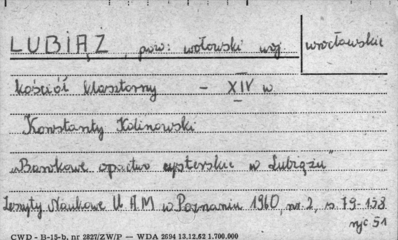 LUBIĄŻ, pow: wołowski woj. wrocławskie
kościół klasztorny - XIV w
Konstanty Kalinowski
"Barokowe opactwo cysterskie w Lubiążu"
Zeszyty Naukowe U A M w Poznaniu 1960, nr. 2, s. 79-158
ryc 51
CWD - B-15-b, nr 2827/ZW/P — WDA 2694 13.12.62 1.700.000